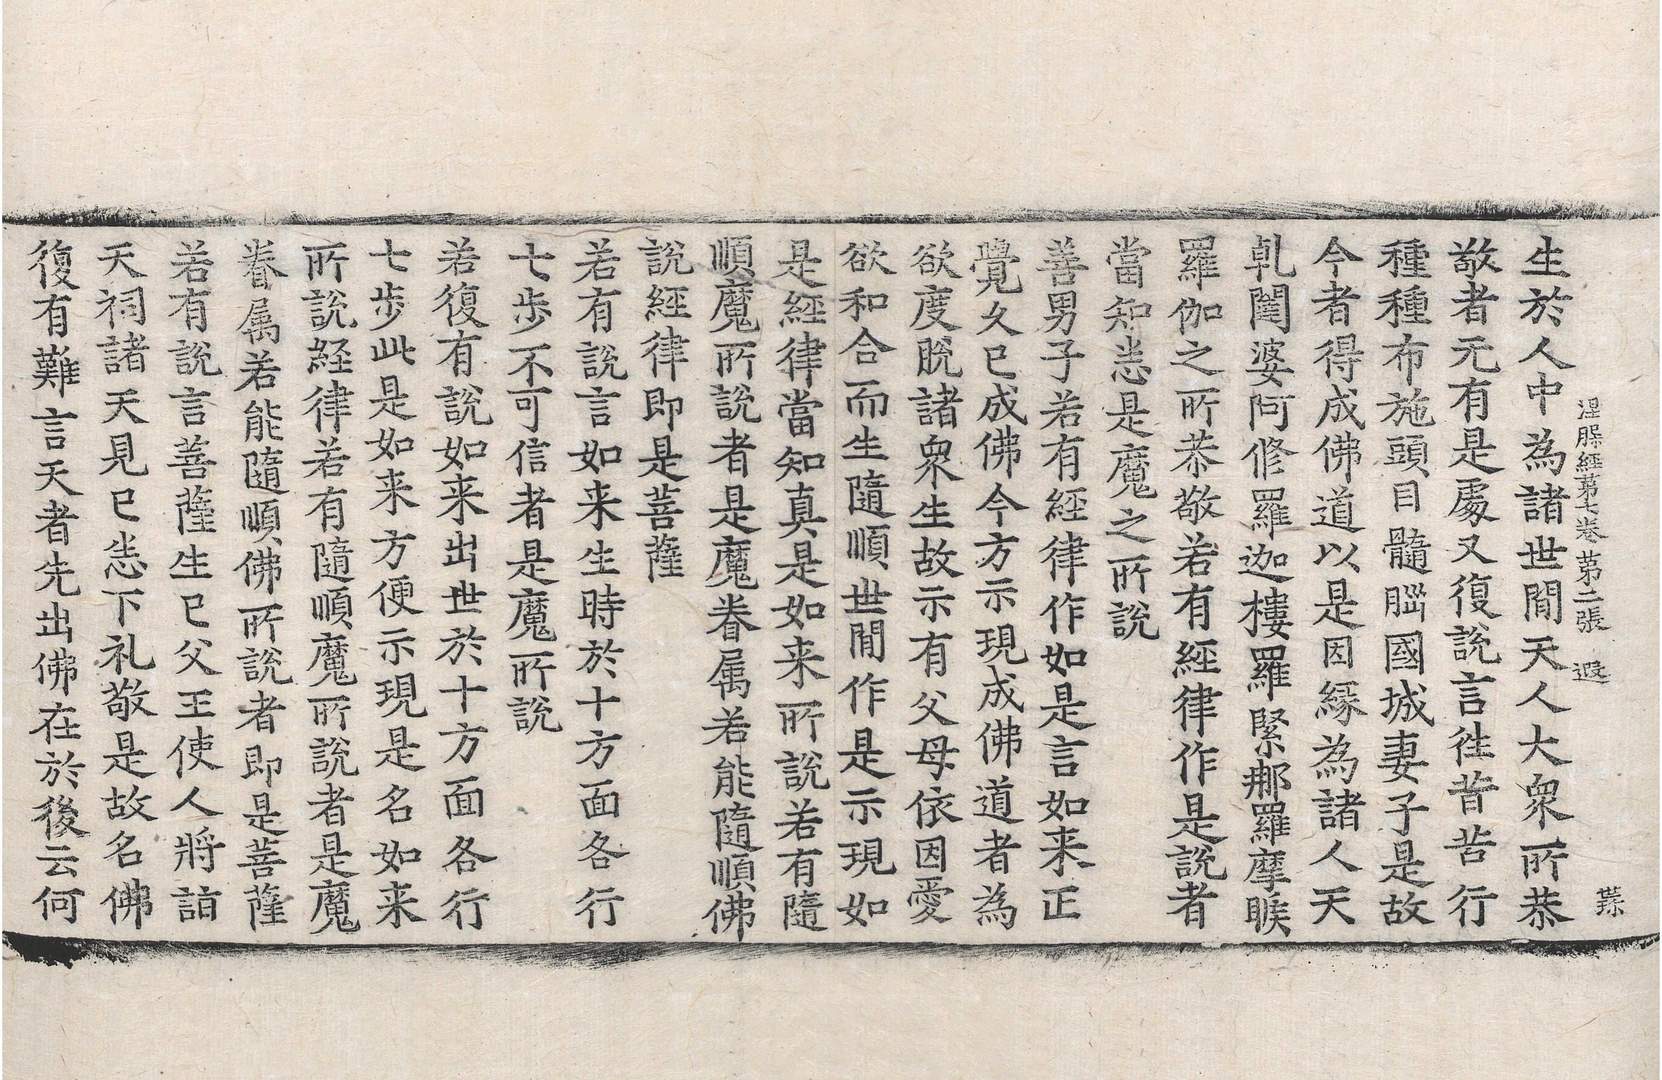 涅槃經第七卷 第二張 遐
生於人中為諸世間天人大衆所恭
敬者无有是處又復說言往昔苦行
種種布施頭目髓腦國城妻子是故
今者得成佛道以是因緣為諸人天
乹闥婆阿修羅迦樓羅緊那羅摩睺
羅伽之所恭敬若有經律作是說者
當知恙是魔之所說
善男子若有經律作如是言如来正
覺久已成佛今方示現成佛道者為
欲度脫諸衆生故示有父母依因愛
欲和合而生隨順世間作是示現如
是經律當知真是如来所說若有隨
順魔所說者是魔眷属若能隨順佛
說經律即是菩薩
若有說言如来生時於十方面各行
七步不可信者是魔所說
若復有說如来出世於十方面各行
七步此是如来方便示現是名如来
所說經律若有隨順魔所說者是魔
眷属若能隨順佛所說者即是菩薩
若有說言菩薩生已父王使人將詣
天祠諸天見已恙下礼敬是故名佛
復有難言天者先出佛在於後云何